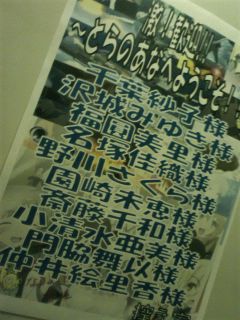 激!!歓迎!!!
～とらのあなへようこそ!～
千葉紗子様
沢城みゆき様
福圓美里様
名塚佳織様
野川さくら様
園崎未恵様
斎藤千和様
小清水亜美様
門脇舞以様
仲井絵里香様